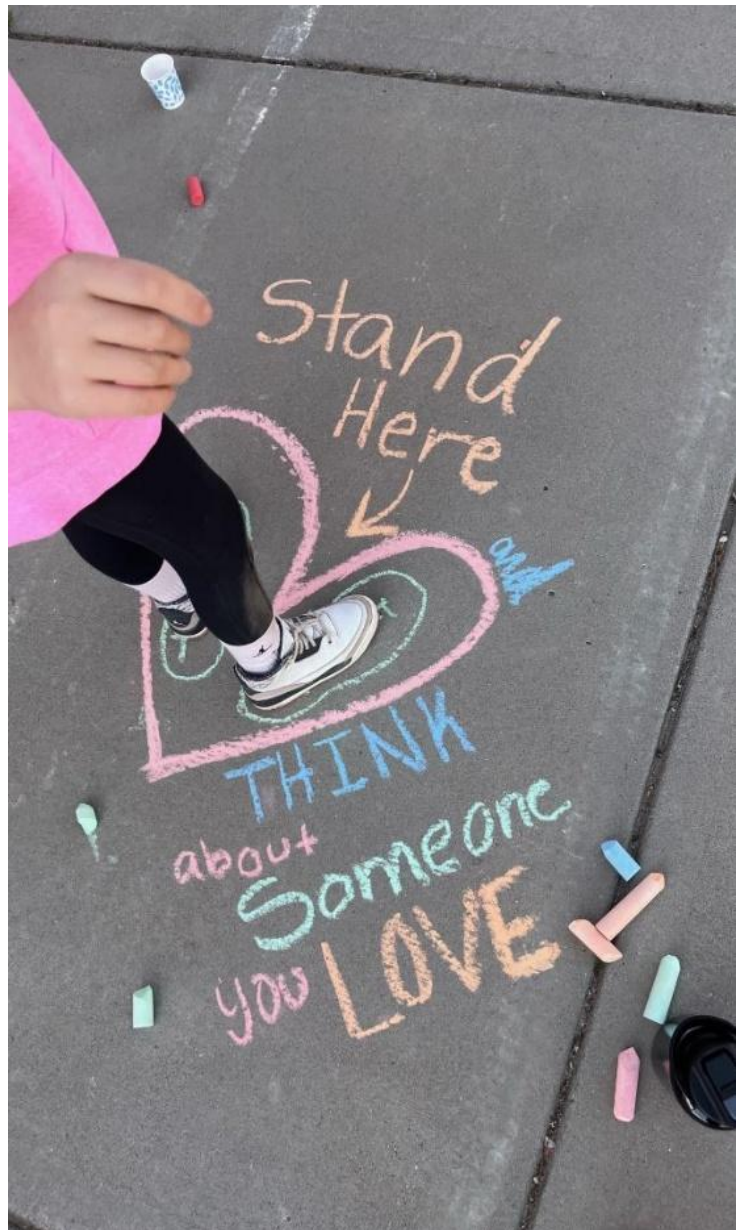 Stand
Here
and
THINK
about
Someone
you LOVE